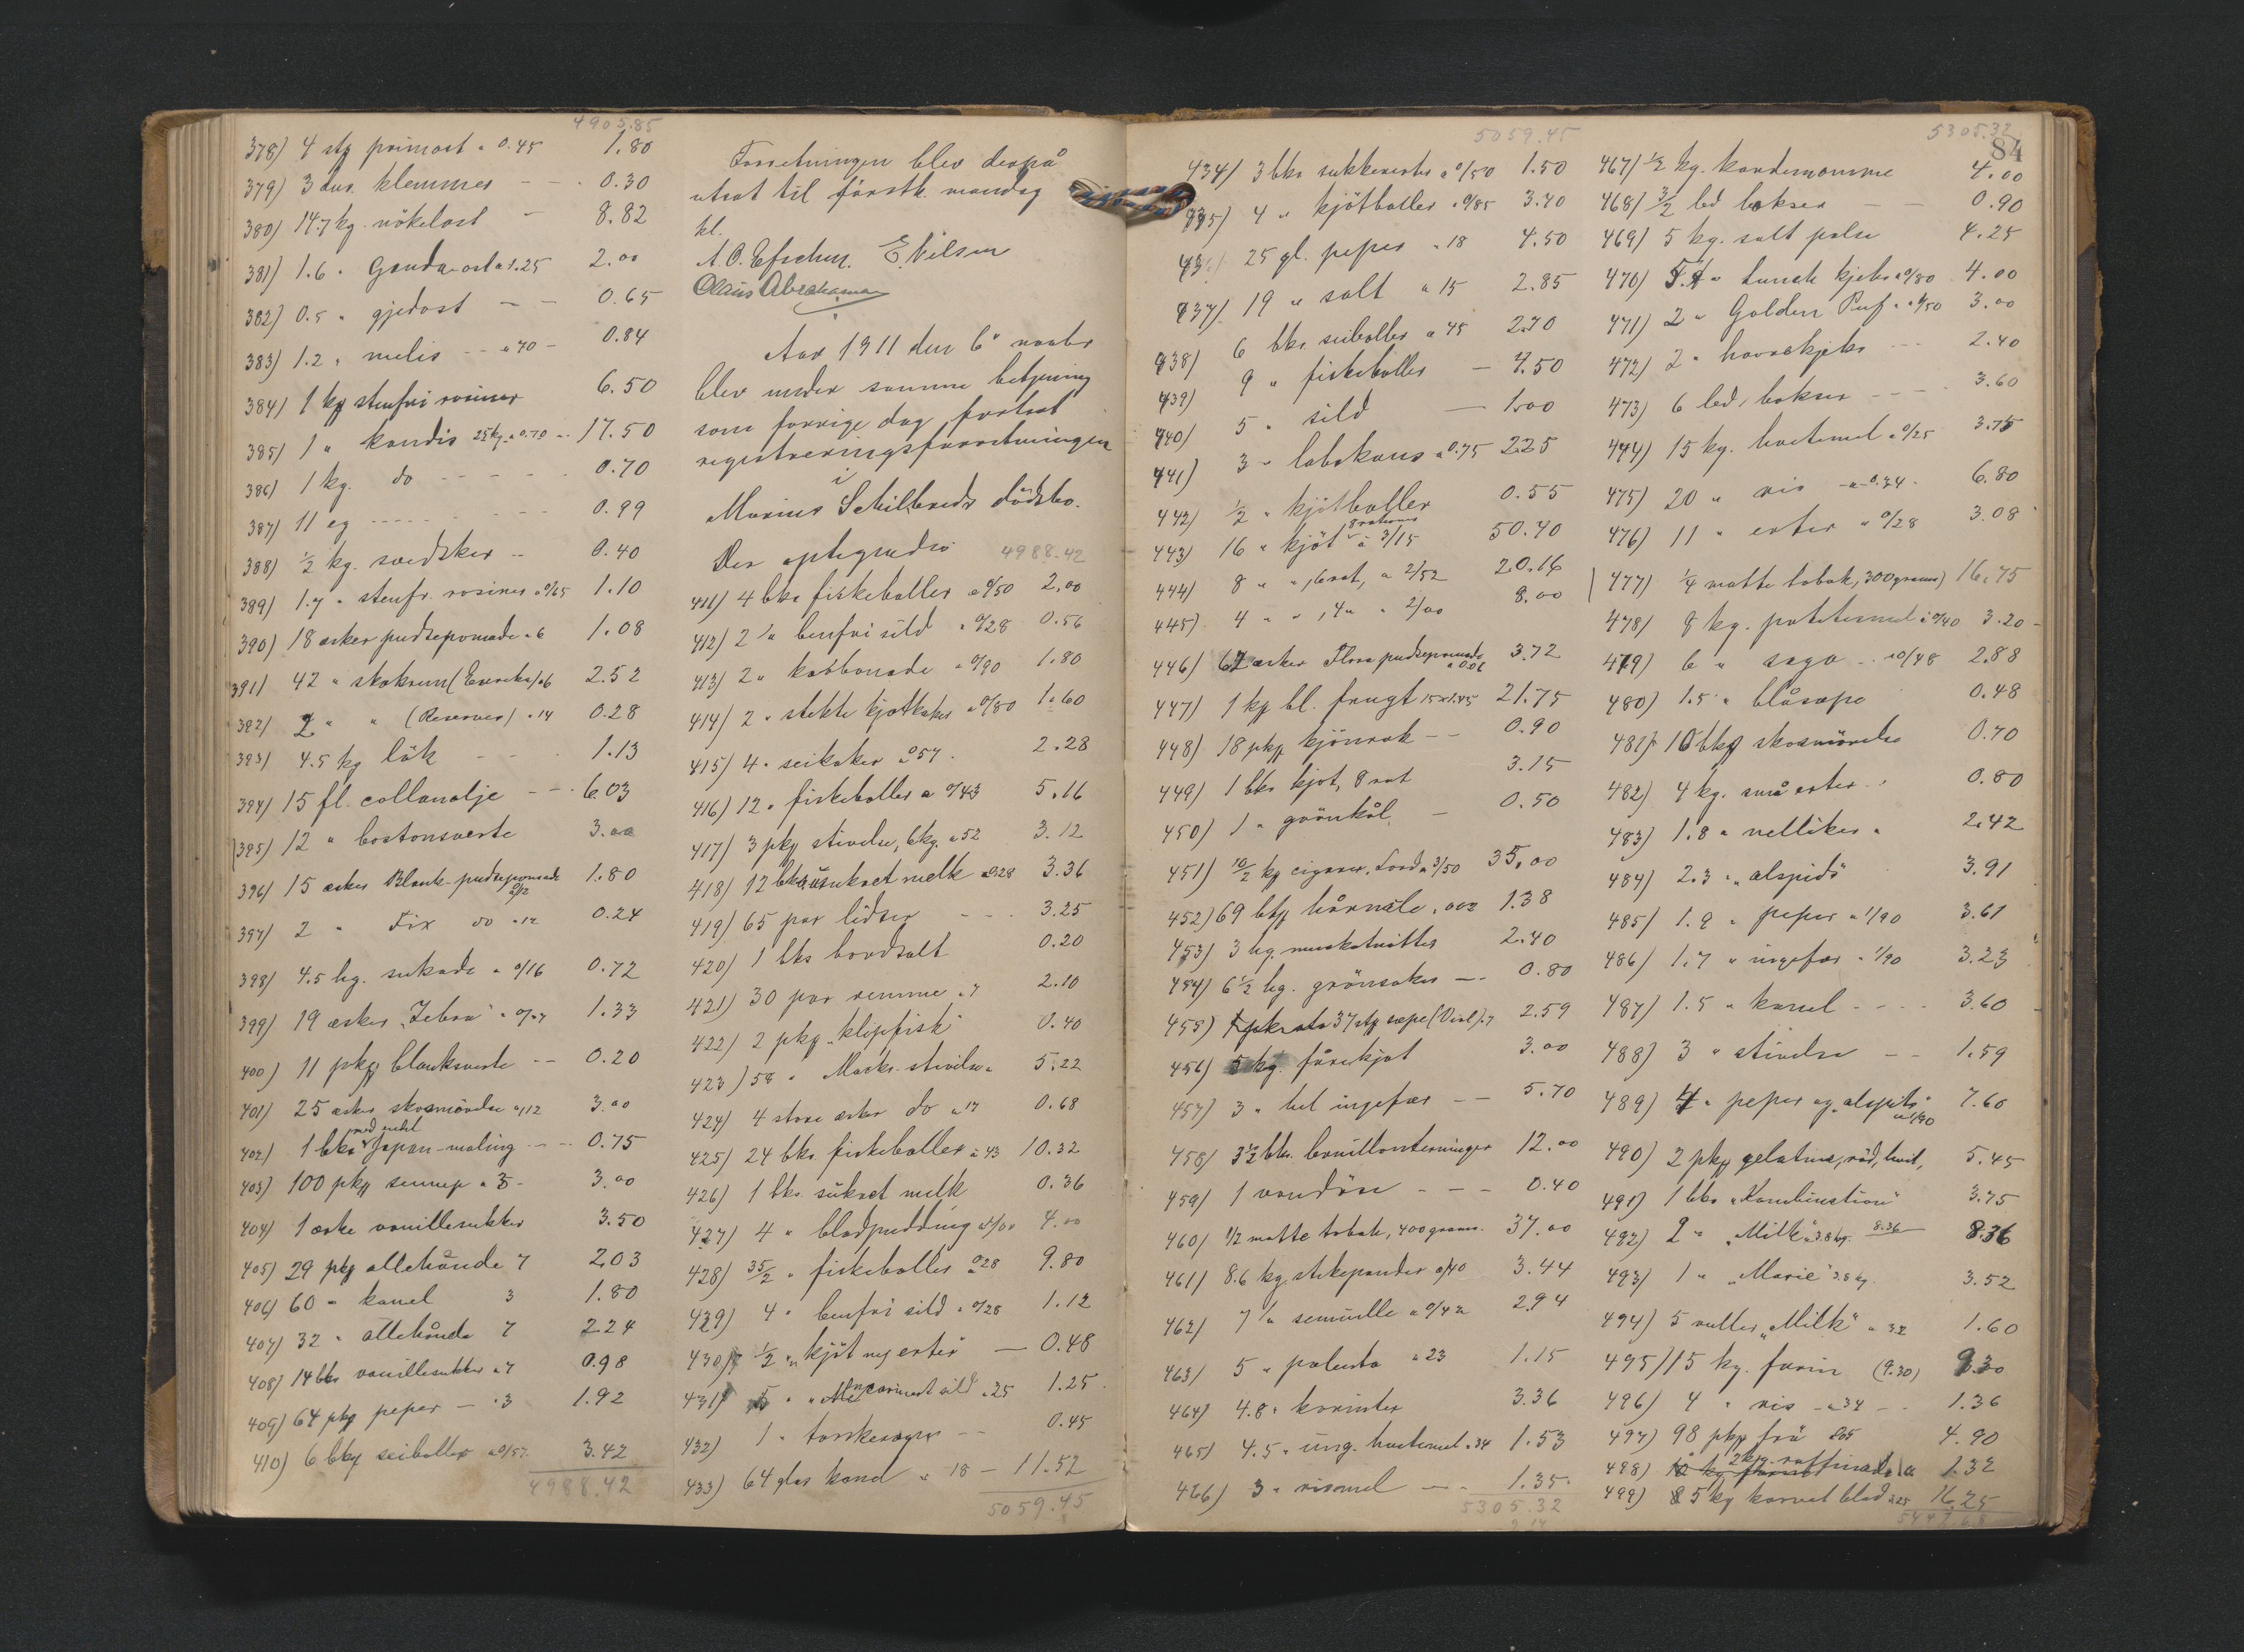 4905.85
378) 4 stg primost a 0.45 1.80
379) 3 dus. klemmer - - 0.30
380) 14.7 kg. nökelost - 8.82
381) 1.6 " Gouda-ost a 1.25 2.00
382) 0.5 " gjedost - - 0.65
383) 1.2 " melis - - a 70 - 0.84
384) 1 kg stenfri rosiner 6.50
385) 1 " kandis 25 kg. a 0.70 - 17.50
386) 1 kg. do - - - - 0.70
387) 11 eg - - - - - 0.99
388) ½ kg. svedsker - 0.40
389) 1.7 " stenfr. rosiner a 0/65 1.10
390) 18 æsker pudsepomade a 6 1.08
391) 42 " skokrem (Eureka) a 6 2.52
392) 2 " " (Reserver) a 14 0.28
393) 4.5 kg lök - - 1.13
394) 15 fl. collanolje - - 6.03
395) 12 " bostonsverte 3.00
396) 15 æsker Blank-pudsepomade a 12 1.80
397) 2 " Fix do a 12 0.24
398) 4.5 hg. sukade a 0/16 0.72
399) 19 æsker "Zebra" a 0/07 1.33
400) 11 pkg blanksverte - - 0.20
401) 25 æsker skosmörelse a 12 3.00
402) 1 bks med Japan-maling - - 0.75
403) 100 pkg sennep a 3 - 3.00
404) 1 æske vanillesukker 3.50
405) 29 pkg allehånde 7 2.03
406) 60 " kanel 3 1.80
407) 32 " allehånde 7 2.24
408) 14 bks vanillesukker a 7 0.98
409) 64 pkg peper - a 3 1.92
410) 6 bkg seiboller a 0/57 3.42
4988.42
Forretningen blev derpå
utsat til förstk. mandag
kl.
E. Nilsen
Claus Abrahamsen
Aar 1911 den 6te novbr
blev under samme betjening
som forrige dag fortsat
registreringsforretningen
i
Marius Schilbreds dödsbo.
Der optegnedes 4988.42
411) 4 bks fiskeboller a 0/50 2.00
412) 2 " benfri sild a 0/28 0.56
413) 2 " karbonade a 0/90 1.80
414) 2 " stekte kjøtkaker a 0/80 1.60
415) 4 " seikaker a 57 2.28
416) 12 " fiskeboller a 0/43 5.16
417) 3 pkg stivelse, 6 kg. a 52 3.12
418) 12 bks usukret melk a 0.28 3.36
419) 65 par lidser - - - 3.25
420) 1 bks bordsalt 0.20
421) 30 par remme a 7 2.10
422) 2 pkg "klipfisk" 0.40
423) 58 " Macks stivelse a 5.22
424) 4 store æsker do a 17 0.68
425) 24 bks fiskeboller a 43 10.32
426) 1 bks sukret melk 0.36
427) 4 " blodpudding a 1/00 4.00
428) 35/2 " fiskeboller a 28 9.80
429) 4 " benfri sild a 0/28 1.12
430) ½ " kjöt og erter - 0.48
431) 5 " marineret sild a 25 1.25
432) 1 " torskerogn - - 0.45
433) 64 glas kanel a 18 - 11.52
5059.45
5059.45
434) 3 bks sukkererter a 0/50 1.50
435) 4 " kjötboller a 0/85 3.40
436) 25 gl. peper a 18 4.50
437) 19 " salt a 15 2.85
438) 6 bks seiboller a 45 2.70
439) 9 " fiskeboller - 4.50
440) 5 " sild - 1.00
441) 3 " labskaus a 0.75 2.25
442) ½ " kjötboller 0.55
443) 16 " kjöt 8 rations a 3/15 50.40
444) 8 " ", 6 rat, a 2/52 20.16
445) 4 " ", 4 " a 2/00 8.00
446) 62 æsker Flora pudsepomade a 0.06 3.72
447) 1 kg bl. frugt 15 x 1.45 21.75
448) 18 pkg kjönrøk - - 0.90
449) 1 bks kjöt, 8 rat 3.15
450) 1 " grönkål - 0.50
451) 10/2 kg cigarer, Lord a 3/50 35.00
452) 69 btg hårnåle, a 02 1.38
453) 3 hg. muskatnötter 2.40
454) 6½ hg. grönsaker - 0.80
455) 37 stg sæpe (Viol) a 7 2.59
456) 5 kg. fårekjøt 3.00
457) 3 " hel ingefær - - 5.70
458) 3½ bks. bouillonterninger 12.00
459) 1 vandöse - - - 0.40
460) ½ matte tobak, 400 grams. 37.00
461) 8.6 kg. stekepander a 0/40 3.44
462) 7 " semulle a 0/42 2.94
463) 5 " polenta a 23 1.15
464) 4.8 " korinter 3.36
465) 4.5 " ung. hvetemel a 34 1.53
466) 3 " rismel - - 1.35
5305.32
5305.32
84
467) ½ kg. kardemomme 4.00
468) 3/2 led bokser - - 0.90
469) 5 kg. salt pølse 4.25
470) 5.4 " Lunch kjeks a 0/80 4.00
471) 2 " Golden Puf a 1/50 3.00
472) 2 " havrekjeks - - 2.40
473) 6 led. bokser - - - 3.60
474) 15 kg. hvetemel a 0/25 3.75
475) 20 " ris - a 0.34 - 6.80
476) 11 " erter a 0/28 3.08
477) ¼ matte tobak, (300 grams) 16.75
478) 8 kg. potetesmel a 0/40 3.20
479) 6 " sago - a 0/48 2.88
480) 1.5 " blåsæpe 0.48
481) 10 bkg skosmörelse 0.70
482) 4 kg. små erter 0.80
483) 1.8 " nelliker " 2.42
484) 2.3 " "alspids" 3.91
485) 1.9 " peper a 1/90 3.61
486) 1.7 " ingefær a 1/90 3.23
487) 1.5 " kanel - - - 3.60
488) 3 " stivelse - - 1.59
489) 4 " peper og "alspits" a 1/90 7.60
490) 2 pkg gelatine, rød, hvit, 5.45
491) 1 bks "Kombination" 3.75
492) 2 " "Milk" a 3.8 kg. 8.36 8.36
493) 1 " "Marie" 3.8 kg. 3.52
494) 5 ruller "Milk" a 32 1.60
495) 15 kg. farin (9.30) 9.30
496) 4 " ris - a 34 - 1.36
497) 98 pkg frö a 05 4.90
498) 2 kg. raffinade a 1.32
499) 5 kg karvet blad a 25 16.25